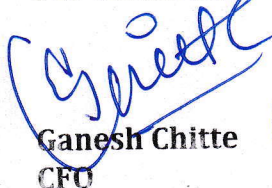 Ganesh Chitte
CFO